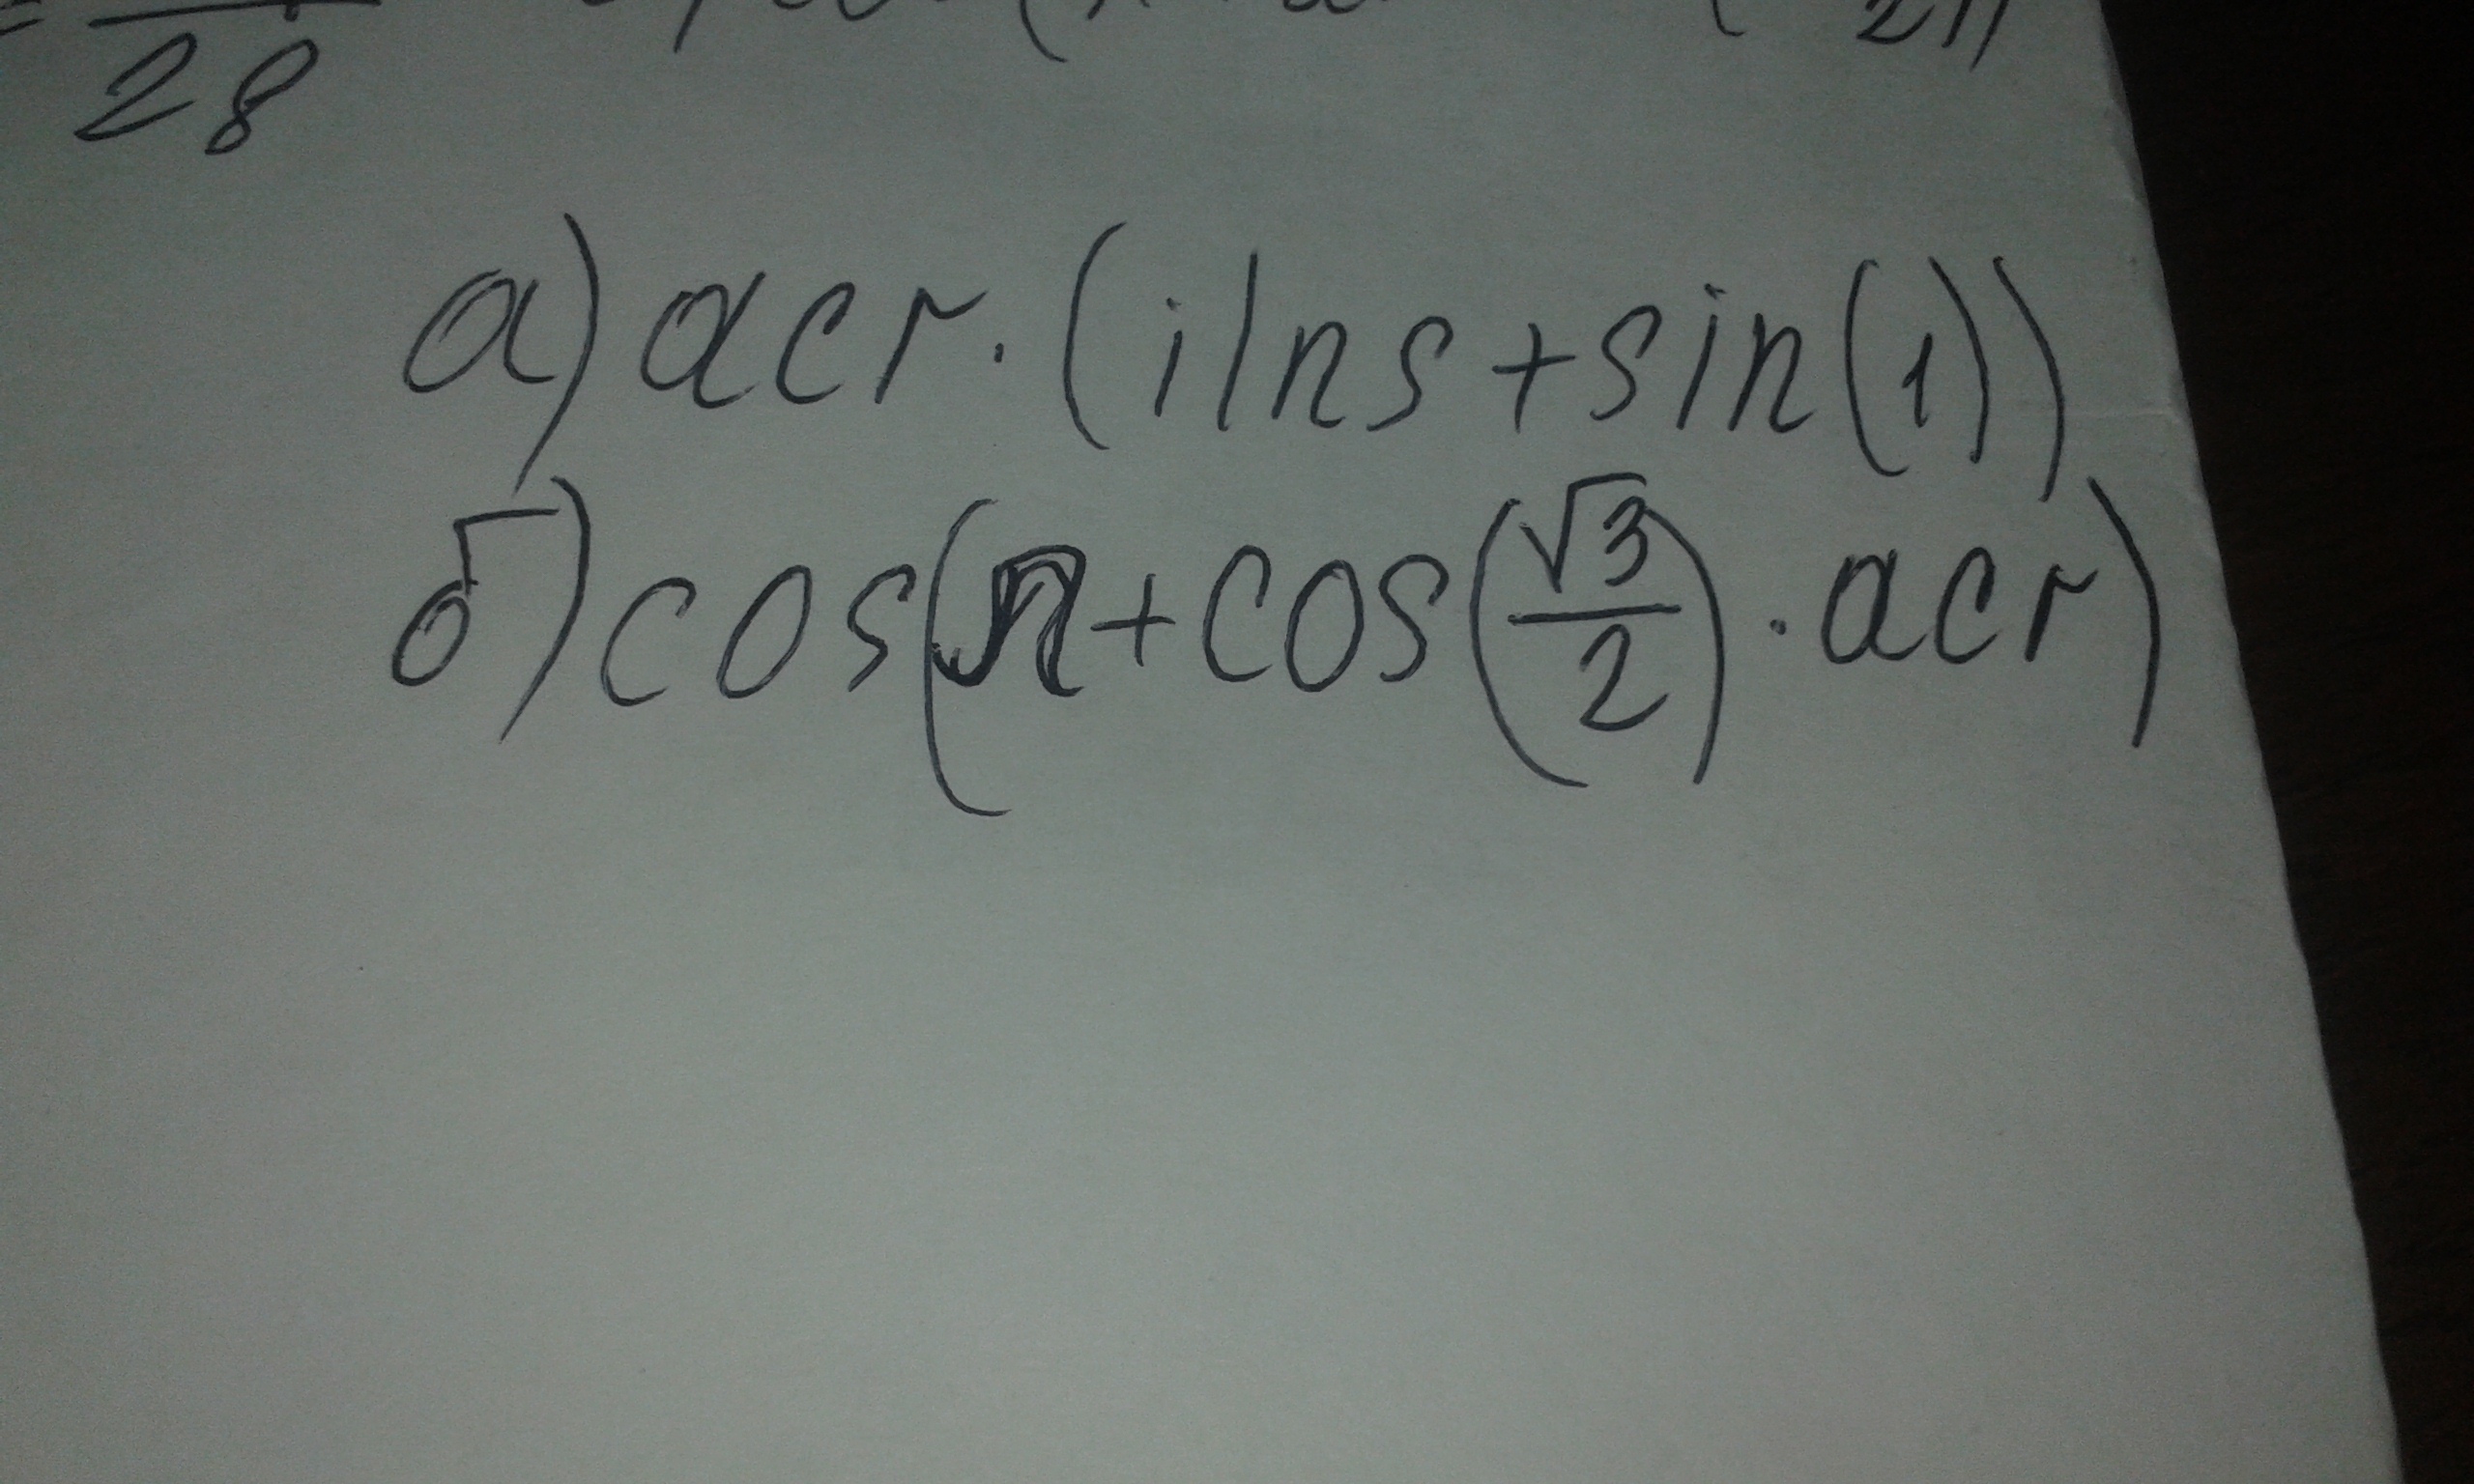 28
а) acr·(ilns+sin(1))
б) cos(π+cos(√3/2)·acr)